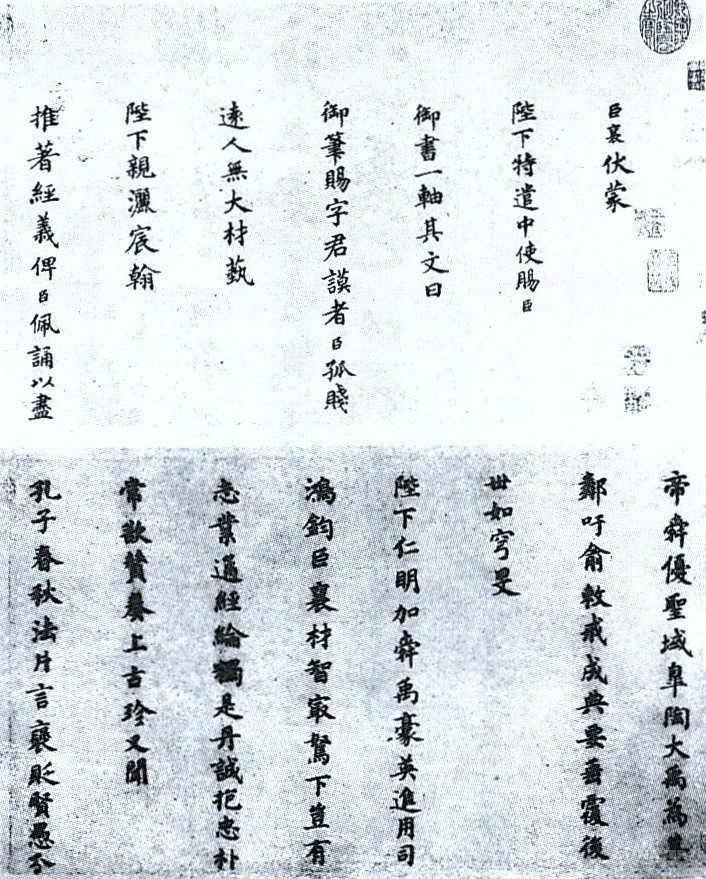 臣襄伏蒙
陛下特遣中使賜臣
御書一軸其文曰
御筆賜字君謨者臣孤賤
遠人無大材藝
陛下親灑宸翰
推著經義俾臣佩誦以盡
帝舜優聖域皐陶大禹為其
鄰吁俞敕戒成典要垂覆後
世如穹旻
陛下仁明加舜禹豪英進用司
鴻鈞臣襄材智冣駑下豈有
志業通經綸獨是丹誠抱忠朴
常欲贊奏上古珍又聞
孔子春秋法片言褒貶賢愚分